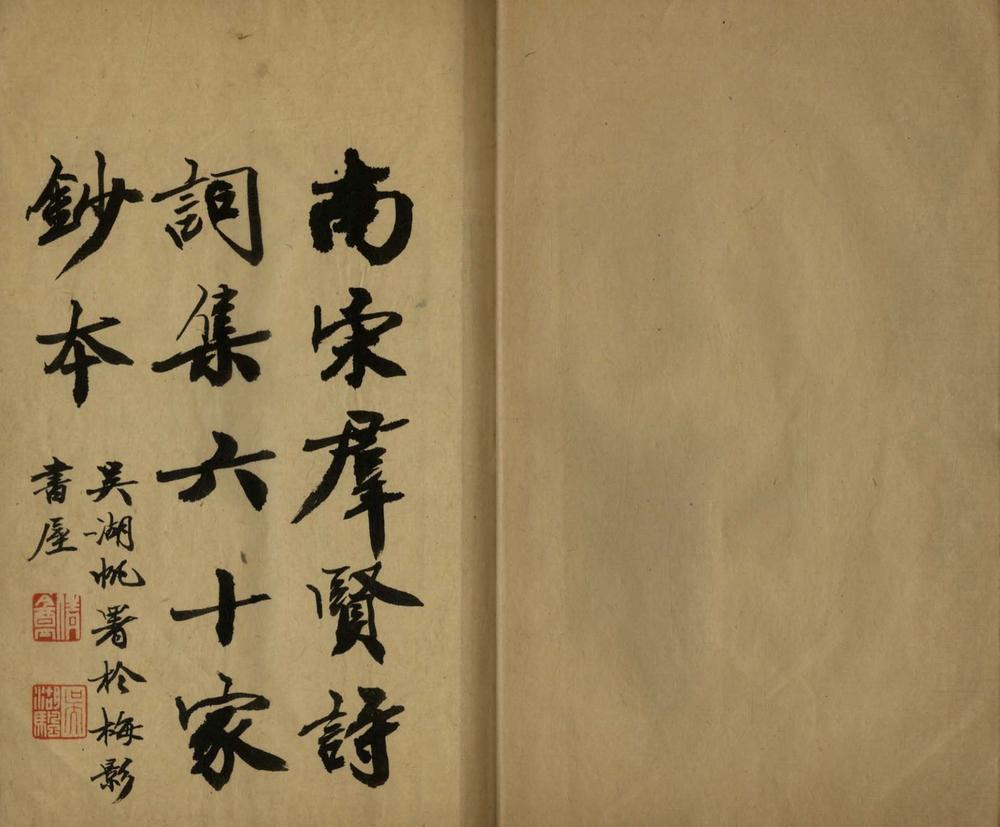 南宋羣賢詩
詞集六十家
鈔本
吳湖帆署於梅影
書屋
吳湖颿